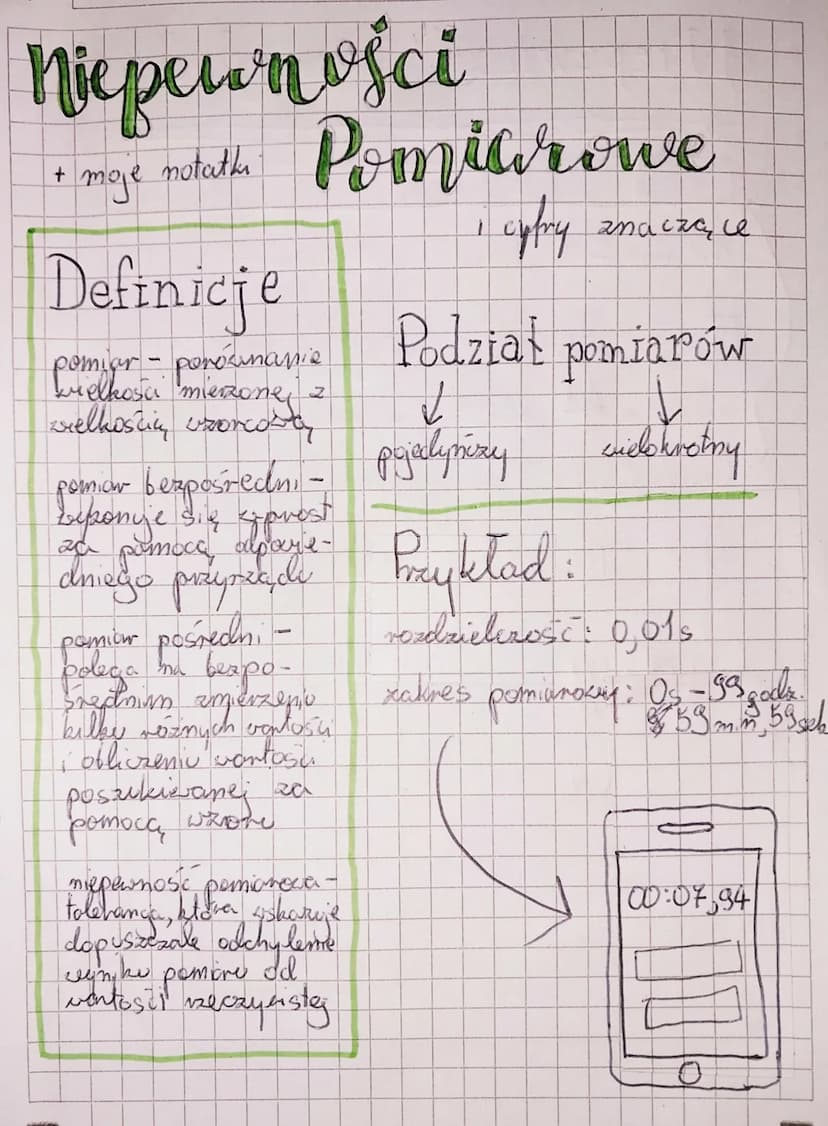 Niepewności
Pomiarowe
+ moje notatki
i cyfry znaczące
Definicje
pomiar - porównanie
wielkości mierzonej z
wielkością wzorcową
pomiar bezpośredni -
wykonuje się wprost
za pomocą odpowie-
dniego przyrządu
pomiar pośredni -
polega na bezpo-
średnim zmierzeniu
kilku różnych wartości
i obliczeniu wartości
poszukiwanej za
pomocą wzoru
niepewność pomiarowa -
tolerancja, która wskazuje
dopuszczalne odchylenie
wyniku pomiaru od
wartości rzeczywistej
Podział pomiarów
pojedynczy wielokrotny
Przykład:
rozdzielczość: 0,01s
zakres pomiarowy: 0s - 99 godz.
59 min, 59 sek
00:07,94